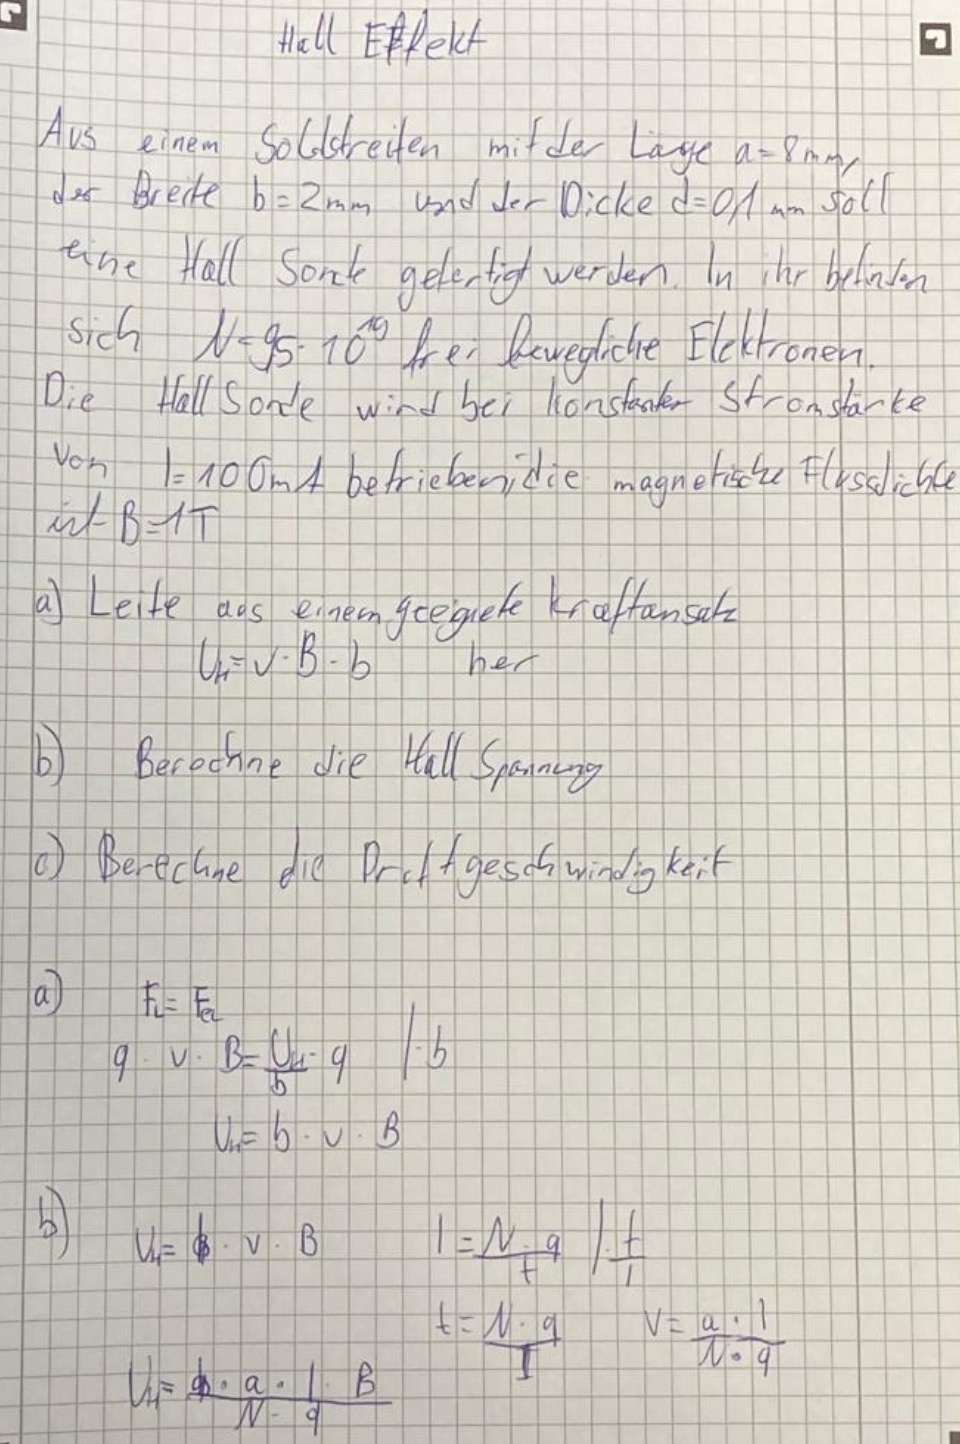 Hall Effekt
Aus einem Goldstreifen mit der Länge a=8mm,
der Breite b=2mm und der Dicke d=0,1 mm soll
eine Hall Sonde gefertigt werden. In ihr befinden
sich N=95·10^19 frei bewegliche Elektronen.
Die Hall Sonde wird bei konstanter Stromstärke
von I=100mA betrieben, die magnetische Flussdichte
ist B=1T
a) Leite aus einem geeignete Kraftansatz
U_H=v·B·b her
b) Berechne die Hall Spannung
c) Berechne die Driftgeschwindigkeit
a) F_L=F_el
q·v·B=U_H/b·q |·b
U_H=b·v·B
b) U_H=b·v·B I=N·q/t |·t/I
t=N·q/I v=a·I/N·q
U_H=b·a·I·B/N·q